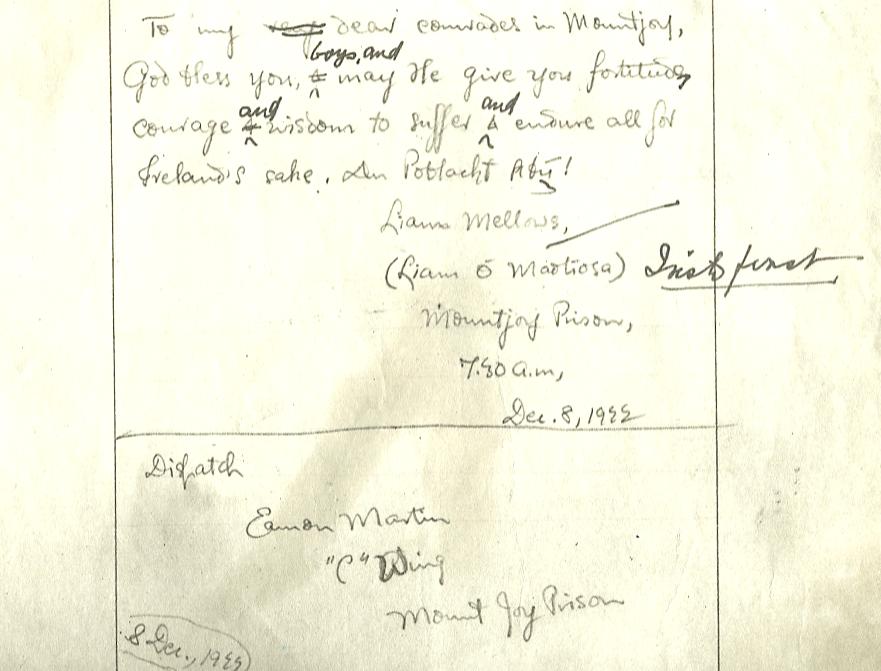 To my dear comrades in Mountjoy,
boys, and
God bless you, may He give you fortitude,
and and
courage & wisdom to suffer & endure all for
Ireland's sake. An Poblacht Abú!
Liam Mellows,
(Liam Ó Maolíosa) Irish first
Mountjoy Prison,
7.30 a.m,
Dec. 8, 1922
Dispatch
Eamon Martin
"C" Wing
Mount Joy Prison
8 Dec., 1922